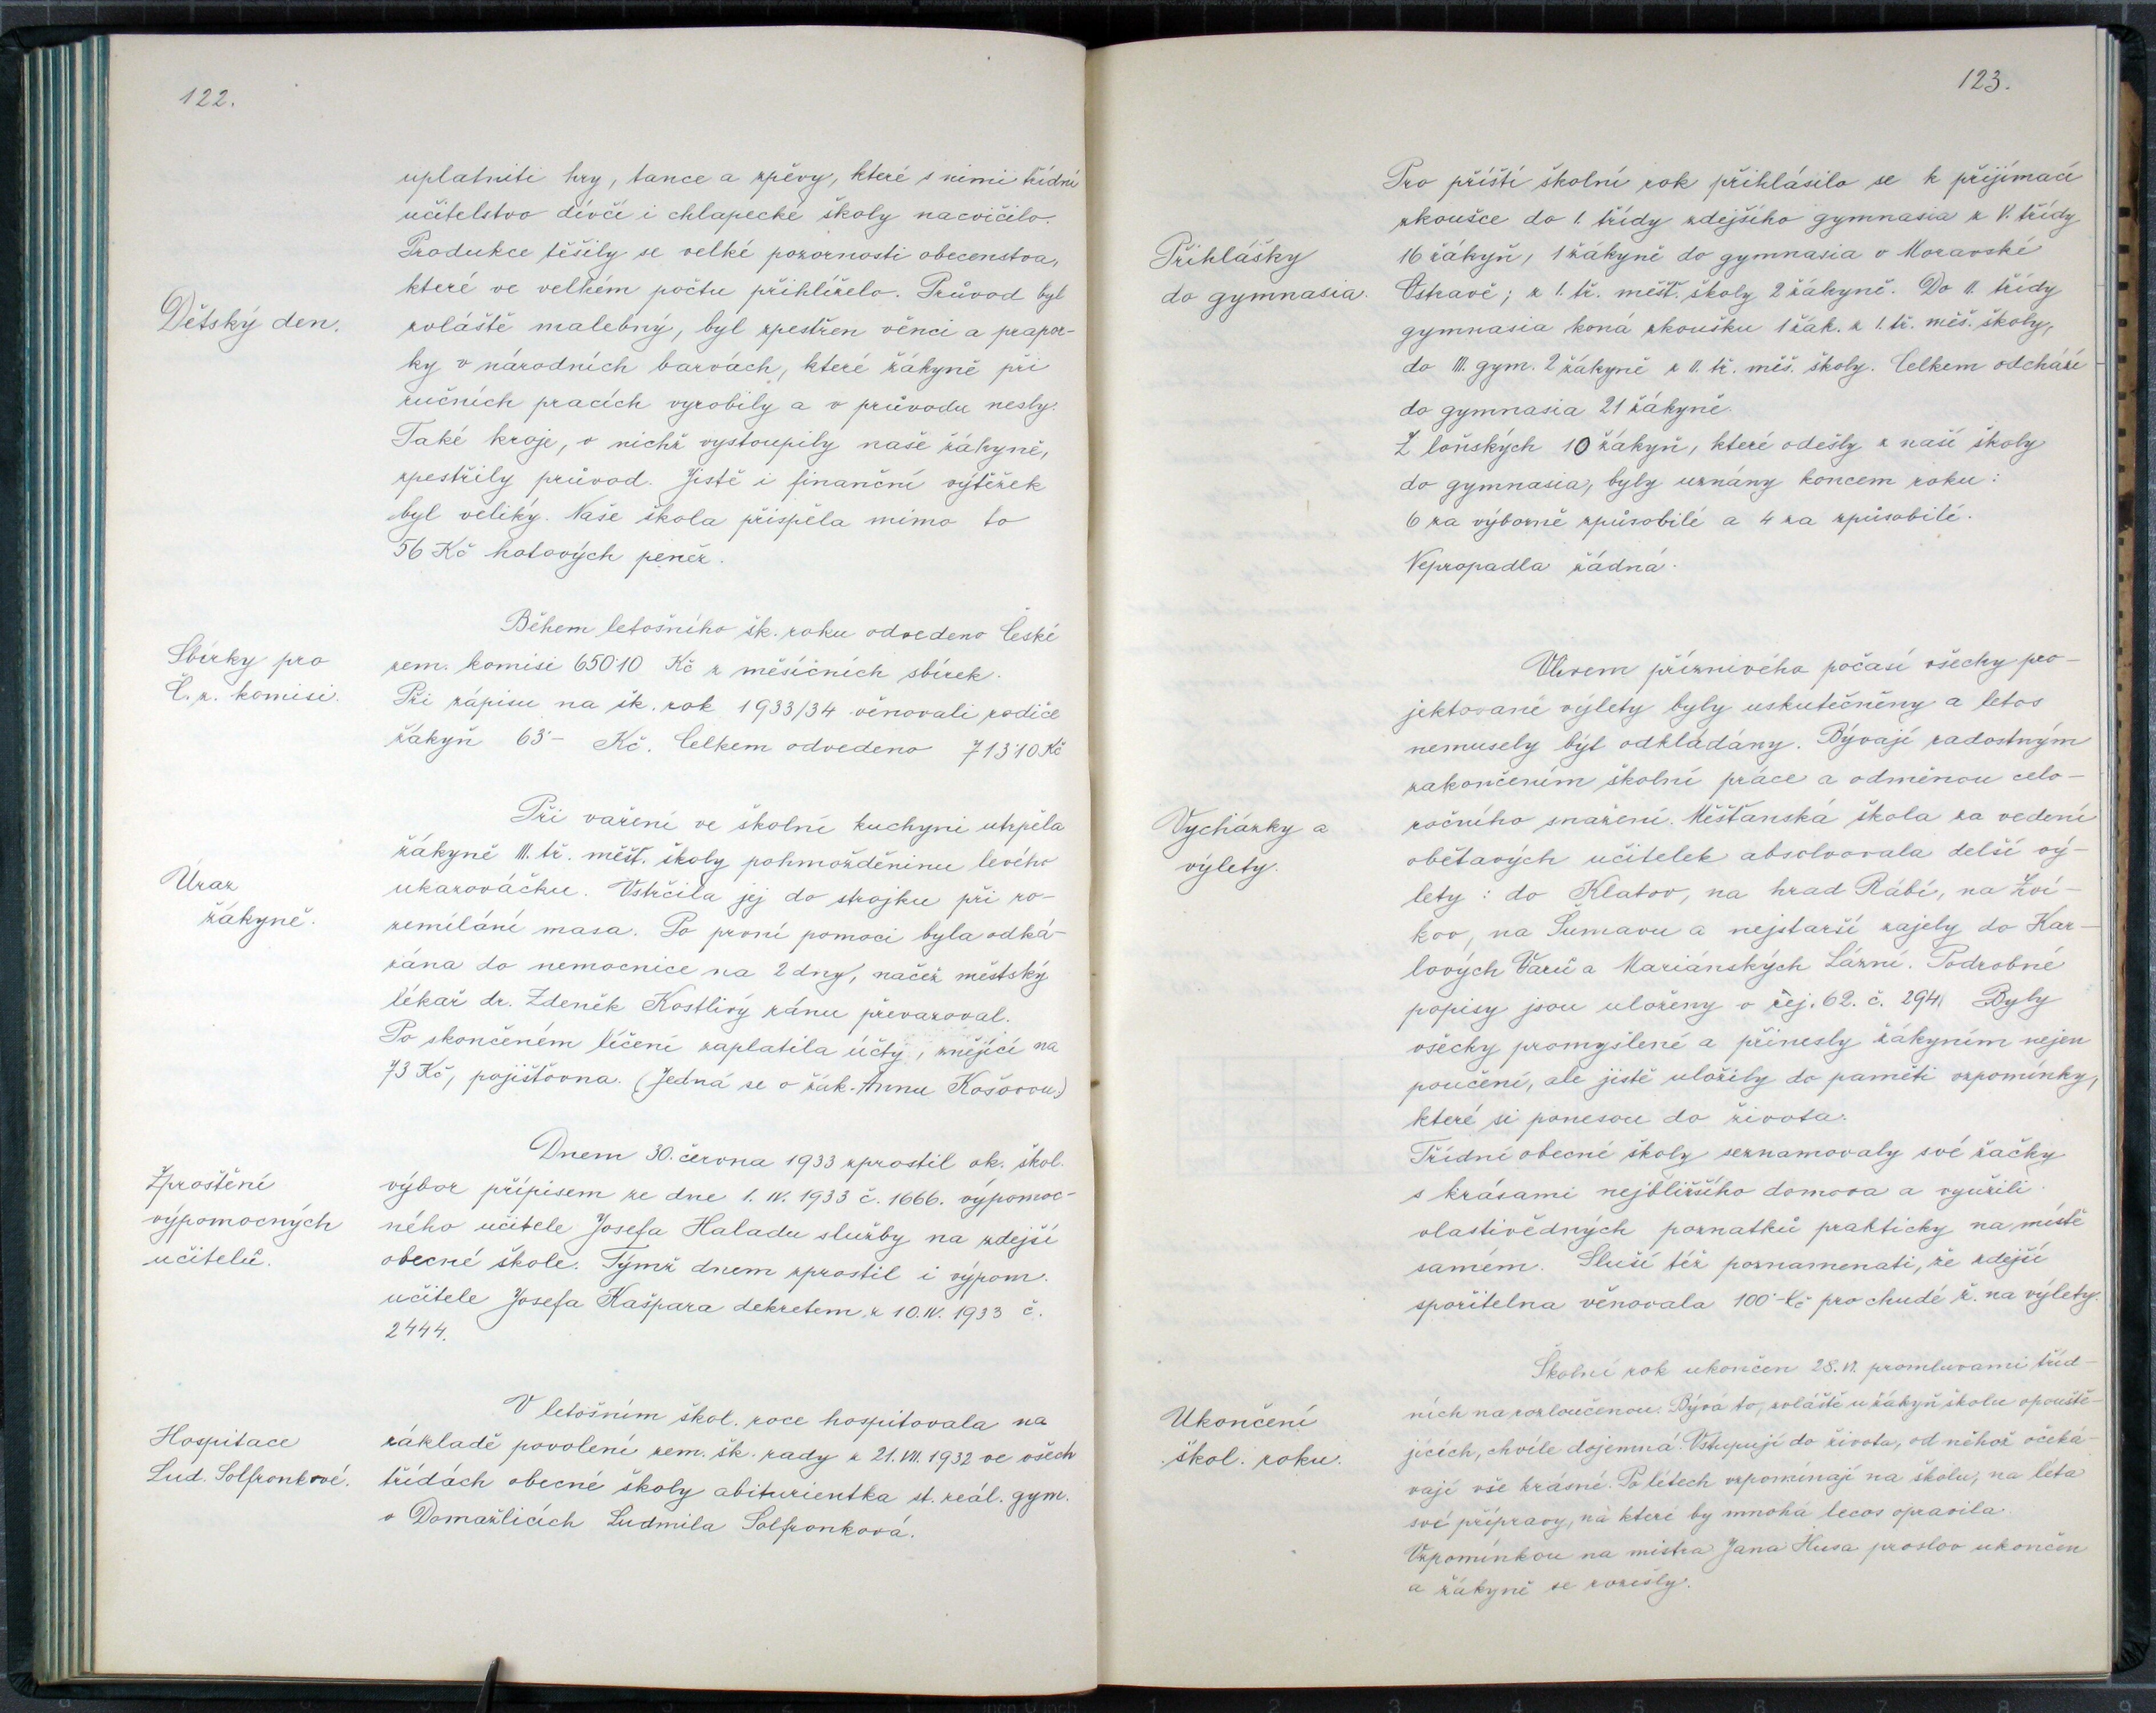 122.
uplatniti hry, tance a zpěvy, které s nimi třídní
učitelstvo dívčí i chlapecké školy nacvičilo.
Produkce těšily se velké pozornosti obecenstva,
které ve velkém počtu přihlíželo. Průvod byl
Dětský den.
zvláště malebný, byl zpestřen věnci a prapor-
ky v národních barvách, které žákyně při
ručních pracích vyrobily a v průvodu nesly.
Také kroje, v nichž vystoupily naše žákyně,
zpestřily průvod. Jistě i finanční výtěžek
byl veliký. Naše škola přispěla mimo to
56 Kč hotových peněz.
Sbírky pro
Č. z. komisi.
Během letošního šk. roku odvedeno České
zem. komisi 650·10 Kč z měsíčních sbírek.
Při zápisu na šk. rok 1933/34 věnovali rodiče
žákyň 63·- Kč. Celkem odvedeno 713·10 Kč
Úraz
žákyně.
Při vaření ve školní kuchyni utrpěla
žákyně III. tř. měšť. školy pohmožděninu levého
ukazováčku. Vstrčila jej do strojku při ro-
zemílání masa. Po první pomoci byla odká-
zána do nemocnice na 2 dny, načež městský
lékař dr. Zdeněk Kostlivý ránu převazoval.
Po skončeném léčení zaplatila účty, znějící na
73 Kč, pojišťovna. (Jedná se o žák. Annu Košovou.)
Zproštění
výpomocných
učitelů.
Dnem 30. června 1933 zprostil ok. škol.
výbor přípisem ze dne 1. IV. 1933 č. 1666. výpomoc-
ného učitele Josefa Haladu služby na zdejší
obecné škole. Týmž dnem zprostil i výpom.
učitele Josefa Kašpara dekretem z 10. IV. 1933 č.
2444.
Hospitace
Lud. Solfronkové.
V letošním škol. roce hospitovala na
základě povolení zem. šk. rady z 21. VII. 1932 ve všech
třídách obecné školy abiturientka st. reál. gym.
v Domažlicích Ludmila Solfronková.
123.
Přihlášky
do gymnasia.
Pro příští školní rok přihlásilo se k přijímací
zkoušce do 1. třídy zdejšího gymnasia z V. třídy
16 žákyň, 1 žákyně do gymnasia v Moravské
Ostravě; z 1. tř. měšť. školy 2 žákyně. Do II. třídy
gymnasia koná zkoušku 1 žák. z 1. tř. měš. školy,
do III. gym. 2 žákyně z II. tř. měš. školy. Celkem odchází
do gymnasia 21 žákyně.
Z loňských 10 žákyň, které odešly z naší školy
do gymnasia, byly uznány koncem roku:
6 za výborně způsobilé a 4 za způsobilé.
Nepropadla žádná.
Vycházky a
výlety.
Vlivem příznivého počasí všechy pro-
jektované výlety byly uskutečněny a letos
nemusely být odkládány. Bývají radostným
zakončením školní práce a odměnou celo-
ročního snažení. Měšťanská škola za vedení
obětavých učitelek absolvovala delší vý-
lety: do Klatov, na hrad Rábí, na Zví-
kov, na Šumavu a nejstarší zajely do Kar-
lových Varů a Mariánských Lázní. Podrobné
popisy jsou uloženy v řej. 62. č. 294. Byly
všechy promyšlené a přinesly žákyním nejen
poučení, ale jistě uložily do paměti vzpomínky,
které si ponesou do života.
Třídní obecné školy seznamovaly své žačky
s krásami nejbližšího domova a využili
vlastivědných poznatků prakticky na místě
samém. Sluší též poznamenati, že zdejší
spořitelna věnovala 100·- Kč pro chudé ž. na výlety.
Ukončení
škol. roku.
Školní rok ukončen 28. VI. promluvami tříd-
ních na rozloučenou. Bývá to, zvláště u žákyň školu opouště-
jících, chvíle dojemná. Vstupují do života, od něhož očeká-
vají vše krásné. Po létech vzpomínají na školu, na léta
své přípravy, na které by mnohá lecos opravila.
Vzpomínkou na mistra Jana Husa proslov ukončen
a žákyně se rozešly.